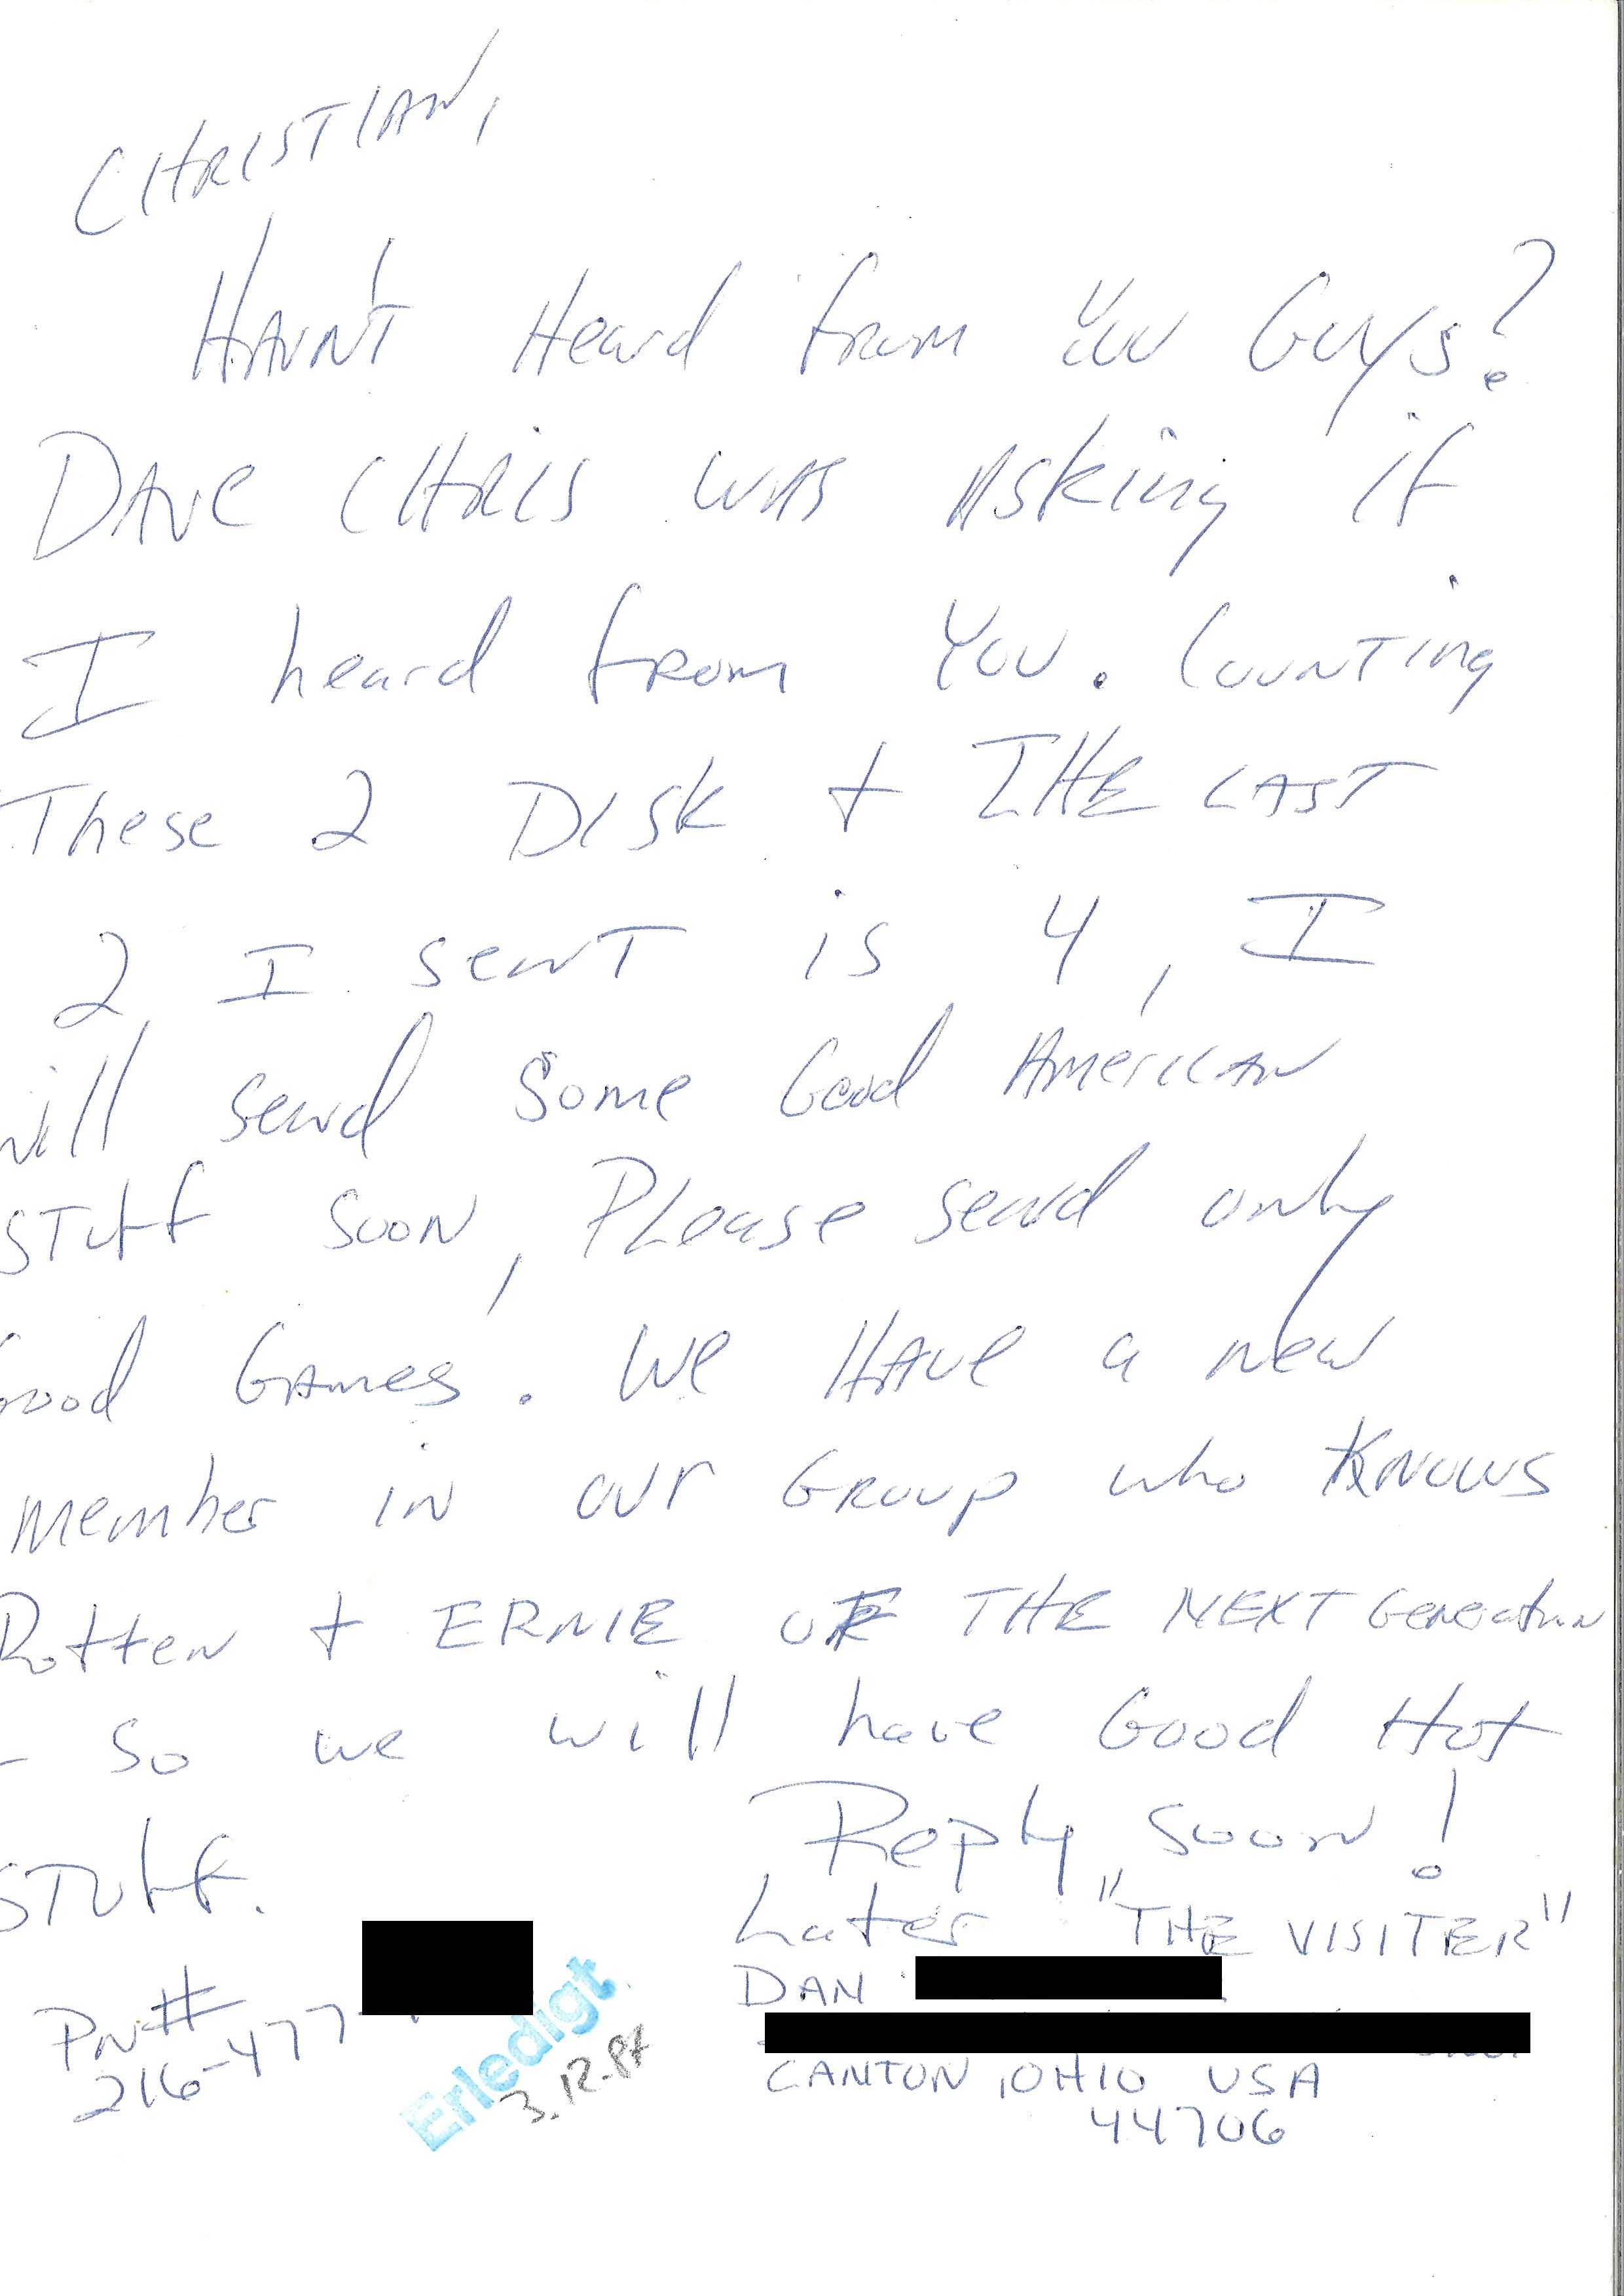 CHRISTIAN,
HAVN'T Heard from YOU GUYS?
DAVE CHRIS WAS ASking if
I heard from YOU. COUNTing
These 2 DISK + THE LAST
2 I senT is 4, I
will send some Good AmericAN
STUff SOON, PLease send only
Good GAmes. We HAve a new
member in our GROUP who KNOWS
Rotten + ERNIE OF THE NEXT Generation
- So we will have Good Hot
STUff.
Reply soon!
Later "THE VISITER"
DAN
PN#
216-477-
CANTON, OHIO USA
44706
Erledigt
3.12.87